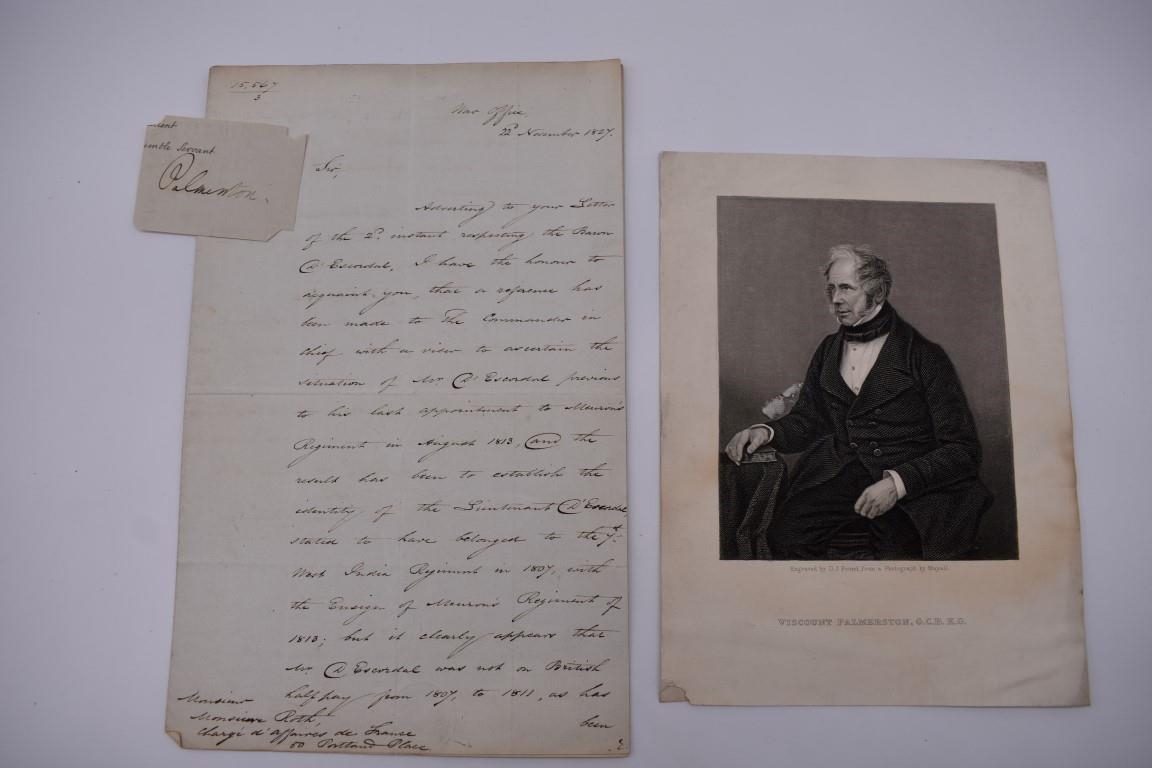 15,567
3
War Office,
22d November 1827.
Sir,
Adverting to your Letter
of the 2d. instant respecting the Baron
D'Escordal, I have the honour to
acquaint you, that a reference has
been made to The Commander in
Chief with a view to ascertain the
situation of Mr. D'Escordal previous
to his last appointment to Meuron's
Regiment in August 1813, and the
result has been to establish the
identity of the Lieutenant D'Escordal
stated to have belonged to the 7th.
West India Regiment in 1807, with
the Ensign of Meuron's Regiment of
1813; but it clearly appears that
Mr. D'Escordal was not on British
half pay from 1807, to 1811, as has
been
Monsieur
Monsieur Roth,
Chargé d'affaires de France
50 Portland Place
umble Servant
Palmerston.
Engraved by D.J. Pound from a Photograph by Mayall.
VISCOUNT PALMERSTON, G.C.B. K.G.